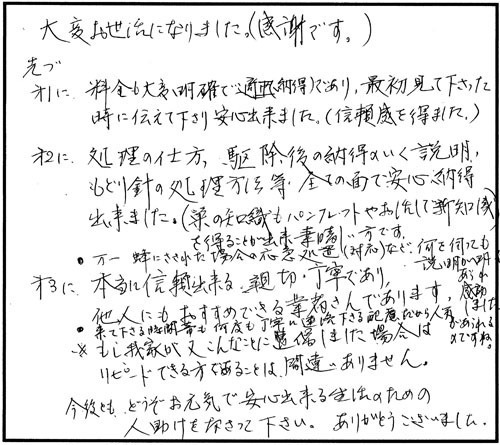 大変お世話になりました。(感謝です。)
先づ
オ1に 料金も大変明確で(適正納得)であり、最初見て下さった
時に伝えて下さり安心出来ました。(信頼感を得ました。)
オ2に 処理の仕方、駆除後の納得のいく説明、
もどり針の処理方法等 全ての面で安心、納得
出来ました。(薬の知識もパンフレットやお話しで新知識
を得ることが出来素晴しい方です。
・万一蜂にさされた場合の応急処置(対応)など、何を何っても
説明が明
あられ
感動
しました
オ3に 本当に信頼出来る、親切・丁寧であり、
他人にもおすすめできる業者さんであります。
・来て下さる時間等も何度も丁寧に連絡下さる配慮だから人気
があられる
のですね。
※もし我家が又こんなことに遭遇しました場合は
リピートできる方であることは、間違いありません。
今後とも、どうぞお元気で安心出来る生活のための
人助けをなさって下さい。 ありがとうございました。